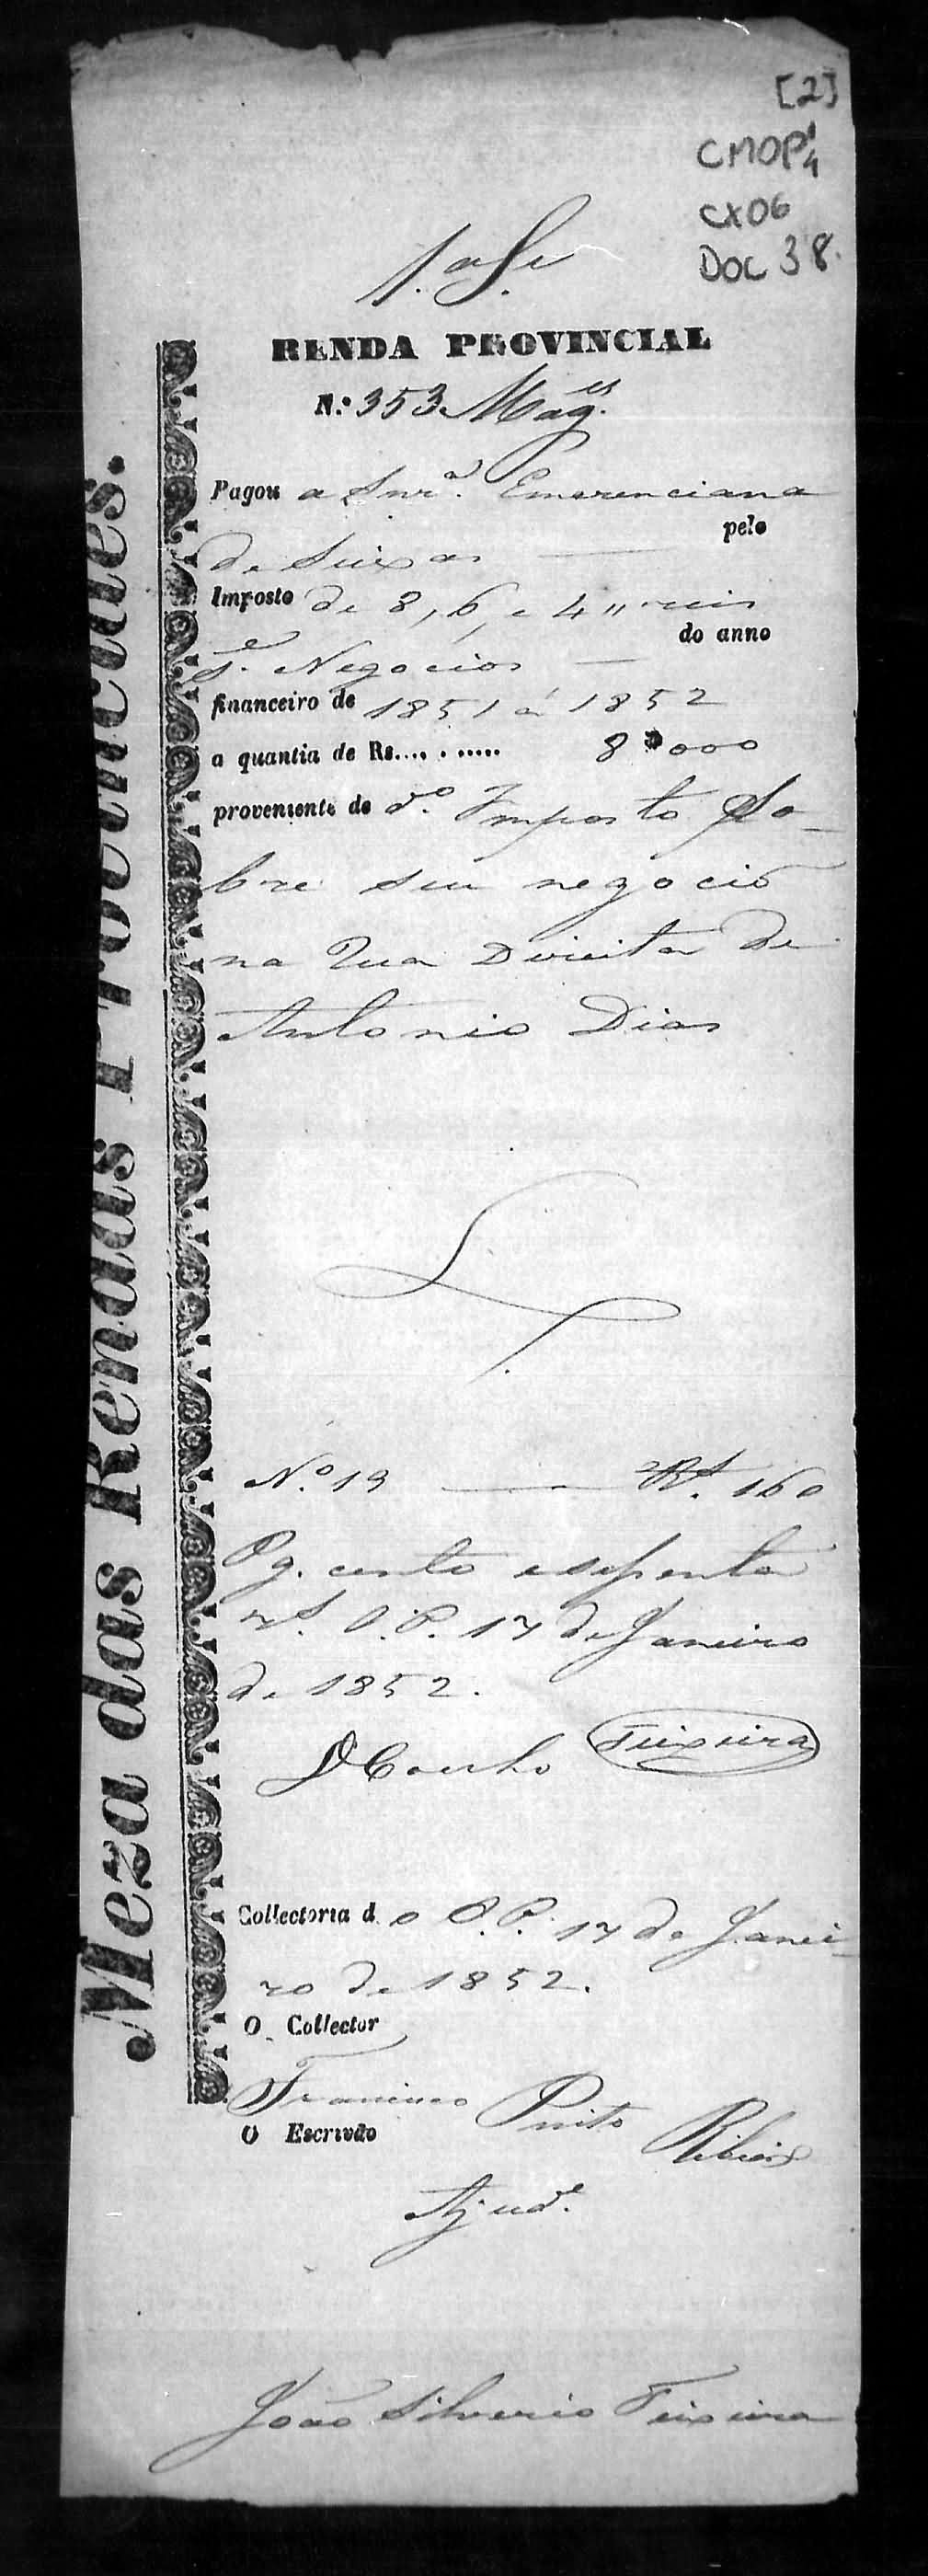 [2]
CMOP 1/4
CX06
DOC 38.
1.a
RENDA PROVINCIAL
N.º 353
Pagou a Snr.ª Emerenciana
pelo
de Seixas
Imposto de 8, 6, e 4 " reis
do anno
s.e Negocios
financeiro de 1851 á 1852
a quantia de Rs......... 8$000
proveniente de d.º Imposto So-
bre seu negocio
na Rua Direita de
Antonio Dias
N.º 19 Rs. 160
Pg. cento e sessenta
rs. O. P. 17 de Janeiro
de 1852.
Coelho Teixeira
Collectoria d o O. P. 17 de Janei-
ro de 1852.
O Collector
Francisco Pinto Ribeiro
O Escrivão
Ajud.e
João Silverio Teixeira
Meza das Rendas Provinciaes.